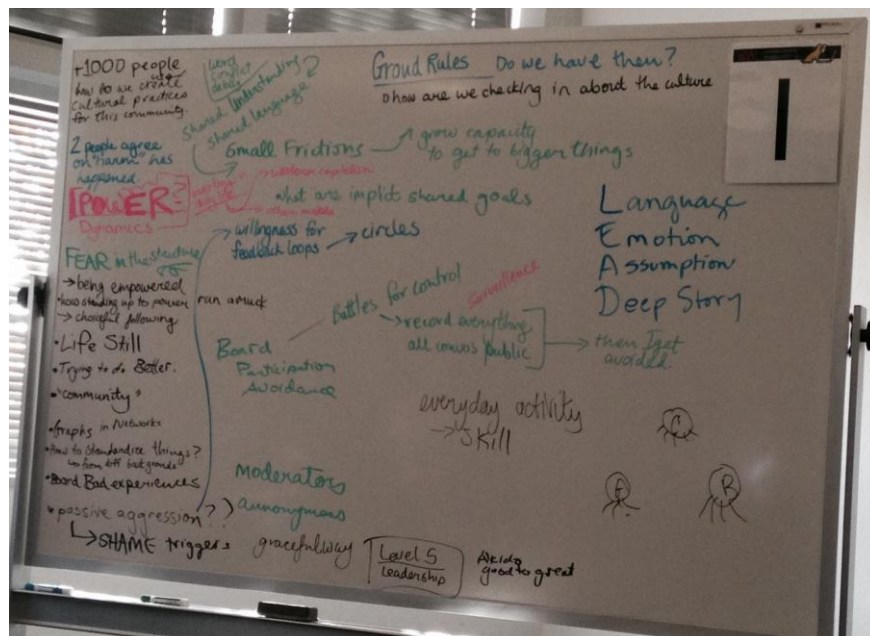 +1000 people
how do we create
cultural practices
for this community.
2 people agree
on "harm" has
happened.
POWER
Dynamics
FEAR in the structure
→ being empowered
• how standing up to power run amuck
→ choiceful following
• Life Skill
• Trying to do Better.
• "community"
• Graphs in Networks
• How to Standardize things?
↳ from diff backgrounds
• Board Bad experiences
• passive aggression??
↳ SHAME triggers
Word
conflict
debate
Shared Understanding?
shared language
Small Frictions → grow capacity
to get to bigger things
western capitalism
What are implict shared goals
willingness for
feedback loops → circles
Battles for control
Surveillence
→ record everything
all convos public
→ then I get
avoided.
Board
Participation
Avoidance
everyday activity
→ Skill
moderators
annonymous
graceful way
Level 5
Leadership
Akido
good to great
Groud Rules Do we have them?
how are we checking in about the culture
Language
Emotion
Assumption
Deep Story
C
B